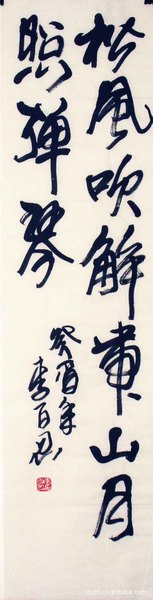 松風吹解帶山月
照彈琴
癸酉年
李百忍